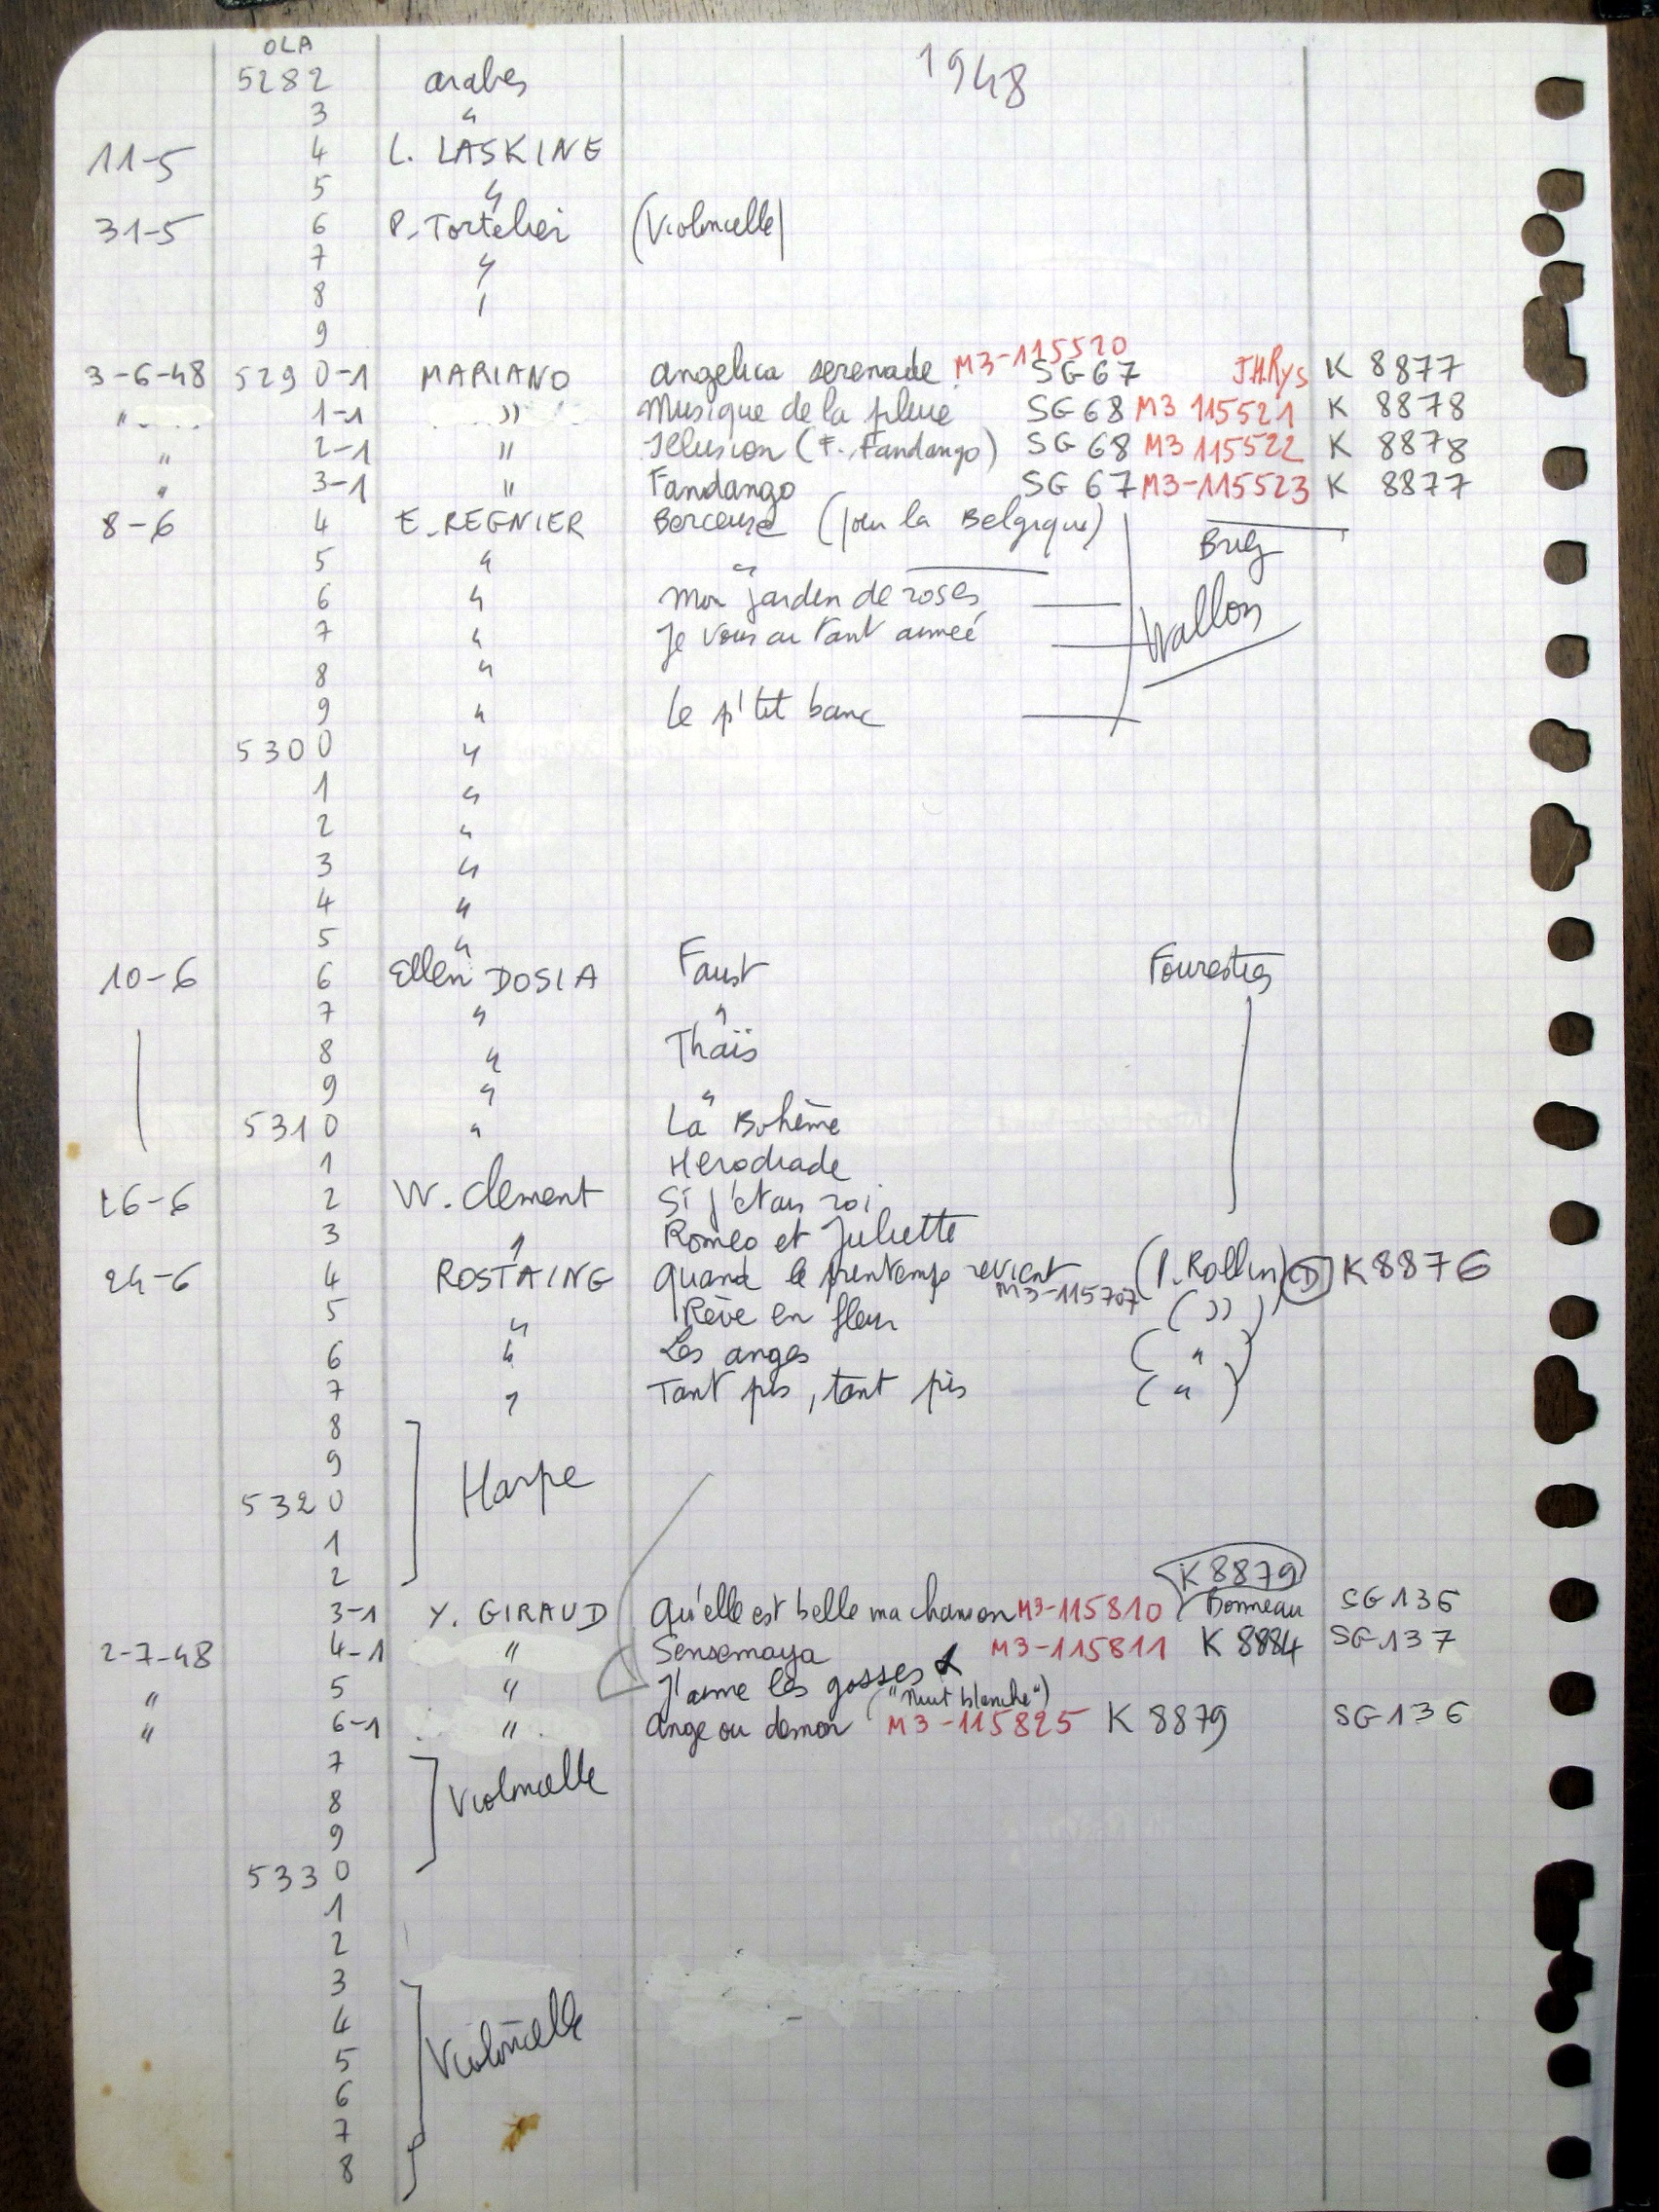 OLA
1948
5282 arabes
3 "
11-5 4 L. LASKINE
5 "
31-5 6 P. Tortelier (Violoncelle)
7 "
8 "
9
M3-115520
3-6-48 5290-1 MARIANO angelica serenade SG 67 J.H.Rys K 8877
" 1-1 " Musique de la pluie SG 68 M3 115521 K 8878
" 2-1 " Illusion (F. Fandango) SG 68 M3 115522 K 8878
" 3-1 " Fandango SG 67 M3-115523 K 8877
8-6 4 E. REGNIER Berceuse (pour la Belgique)
5 " "
6 " Mon jardin de roses Wallon
7 " Je vous ai tant aimée
8 "
9 " Le p'tit banc
5300 "
1 "
2 "
3 "
4 "
5 "
10-6 6 Ellen DOSIA Faust Fourestier
7 " "
8 " Thaïs
9 " "
5310 " La Bohème
1 Herodiade
16-6 2 W. Clement Si j'étais roi
3 " Romeo et Juliette
24-6 4 ROSTAING Quand le printemps revient (P. Rollin) D K8876
M3-115707
5 " Rêve en fleur (")
6 " Les anges (")
7 " Tant pis, tant pis (")
8
9 Harpe
5320
1
2 K 8879
3-1 Y. GIRAUD Qu'elle est belle ma chanson M3-115810 Bonneau SG 136
2-7-48 4-1 " Sensemaya M3-115811 K 8884 SG 137
" 5 " J'aime les gosses
("Nuit blanche")
" 6-1 " Ange ou demon M3-115825 K 8879 SG 136
7
8 Violoncelle
9
5330
1
2
3
4
5 Violoncelle
6
7
8